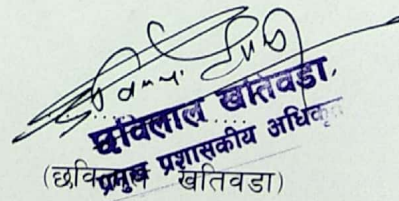 छविलाल खतिवडा
प्रमुख प्रशासकीय अधिकृत
(छवि खतिवडा)